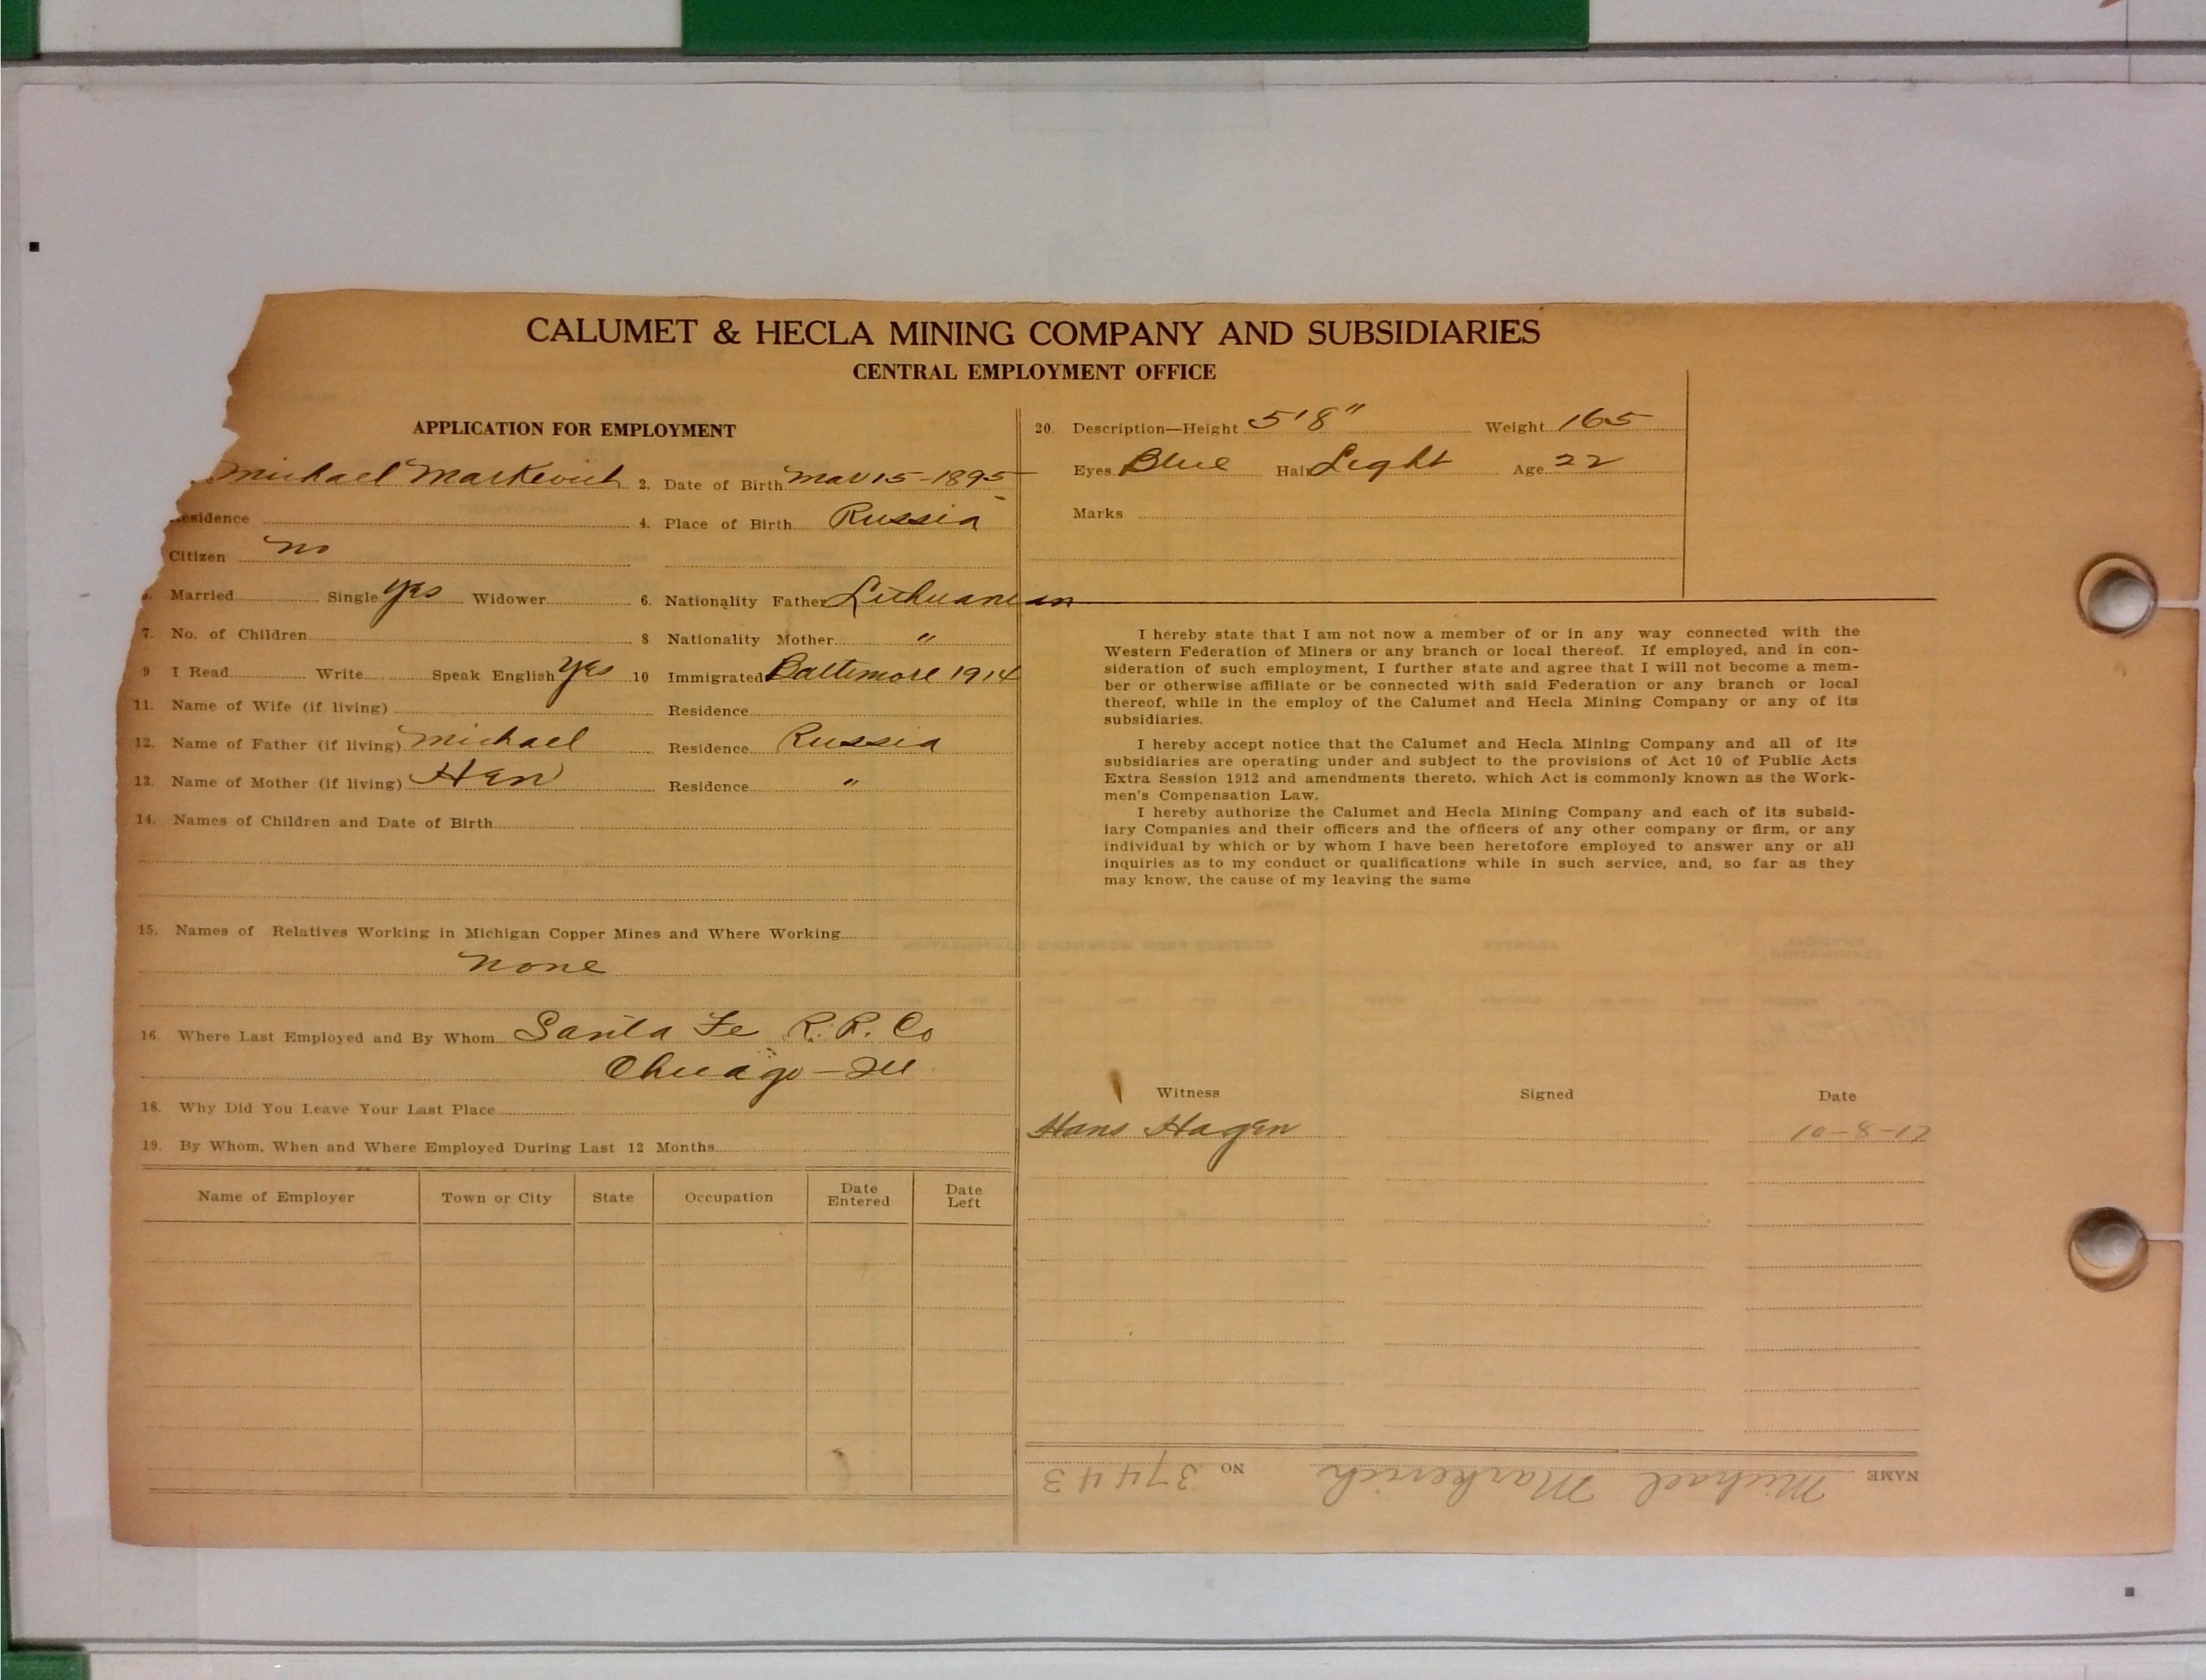 CALUMET & HECLA MINING COMPANY AND SUBSIDIARIES
CENTRAL EMPLOYMENT OFFICE
APPLICATION FOR EMPLOYMENT
Michael Markevich 2. Date of Birth Mar 15-1895
Residence 4. Place of Birth Russia
Citizen no
Married Single yes Widower 6. Nationality Father Lithuanian
7. No. of Children 8 Nationality Mother "
9 I Read Write Speak English yes 10 Immigrated Baltimore 1914
11. Name of Wife (if living) Residence
12. Name of Father (if living) Michael Residence Russia
13. Name of Mother (if living) Residence "
14. Names of Children and Date of Birth
15. Names of Relatives Working in Michigan Copper Mines and Where Working
None
16. Where Last Employed and By Whom Santa Fe R. R. Co
Chicago - Ill
18. Why Did You Leave Your Last Place
19. By Whom, When and Where Employed During Last 12 Months
Name of Employer Town or City State Occupation Date Entered Date Left
20. Description—Height 5'8" Weight 165
Eyes Blue Hair Light Age 22
Marks
I hereby state that I am not now a member of or in any way connected with the
Western Federation of Miners or any branch or local thereof. If employed, and in con-
sideration of such employment, I further state and agree that I will not become a mem-
ber or otherwise affiliate or be connected with said Federation or any branch or local
thereof, while in the employ of the Calumet and Hecla Mining Company or any of its
subsidiaries.
I hereby accept notice that the Calumet and Hecla Mining Company and all of its
subsidiaries are operating under and subject to the provisions of Act 10 of Public Acts
Extra Session 1912 and amendments thereto, which Act is commonly known as the Work-
men's Compensation Law.
I hereby authorize the Calumet and Hecla Mining Company and each of its subsid-
iary Companies and their officers and the officers of any other company or firm, or any
individual by which or by whom I have been heretofore employed to answer any or all
inquiries as to my conduct or qualifications while in such service, and, so far as they
may know, the cause of my leaving the same
Witness Signed Date
Hans Hagen 10-8-17
NAME Michael Markevich NO. 37443